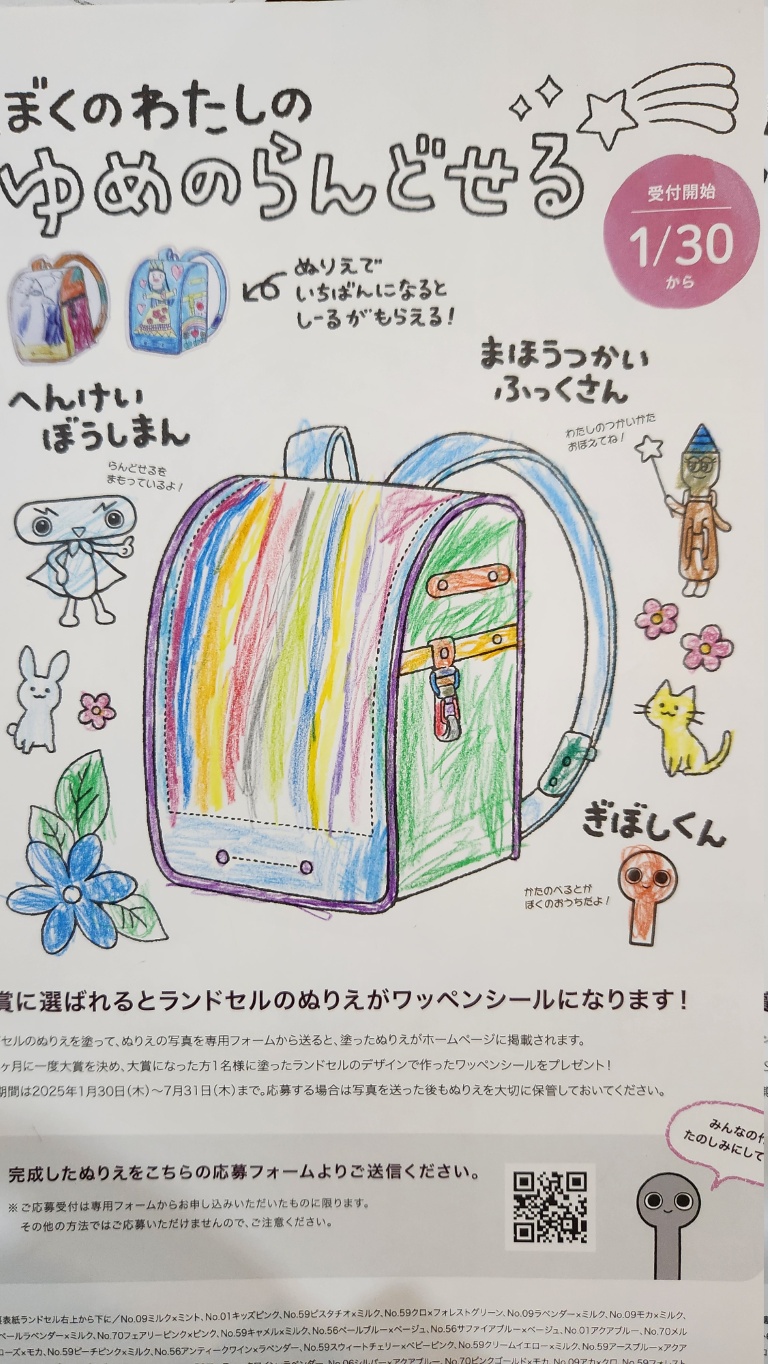 ぼくのわたしの
ゆめのらんどせる
受付開始
1/30
から
ぬりえで
いちばんになると
しーるがもらえる!
まほうつかい
ふっくさん
わたしのつかいかた
おぼえてね!
へんけい
ぼうしまん
らんどせるを
まもっているよ!
ぎぼしくん
かたのべるとが
ぼくのおうちだよ!
賞に選ばれるとランドセルのぬりえがワッペンシールになります!
セルのぬりえを塗って、ぬりえの写真を専用フォームから送ると、塗ったぬりえがホームページに掲載されます。
ヶ月に一度大賞を決め、大賞になった方1名様に塗ったランドセルのデザインで作ったワッペンシールをプレゼント!
期間は2025年1月30日(木)〜7月31日(木)まで。応募する場合は写真を送った後もぬりえを大切に保管しておいてください。
みんなの
たのしみにして
完成したぬりえをこちらの応募フォームよりご送信ください。
※ご応募受付は専用フォームからお申し込みいただいたものに限ります。
その他の方法ではご応募いただけませんので、ご注意ください。
表紙ランドセル右上から下に/No.09ミルク×ミント、No.01キッズピンク、No.59ピスタチオ×ミルク、No.59クロ×フォレストグリーン、No.09ラベンダー×ミルク、No.09モカ×ミルク、
ペールラベンダー×ミルク、No.70フェアリーピンク×ピンク、No.59キャメル×ミルク、No.56ペールブルー×ベージュ、No.56サファイアブルー×ベージュ、No.01アクアブルー、No.70メル
ローズ×モカ、No.59ピーチピンク×ミルク、No.56アンティークワイン×ラベンダー、No.59スウィートチェリー×ベビーピンク、No.59クリームイエロー×ミルク、No.59アースブルー×アクア